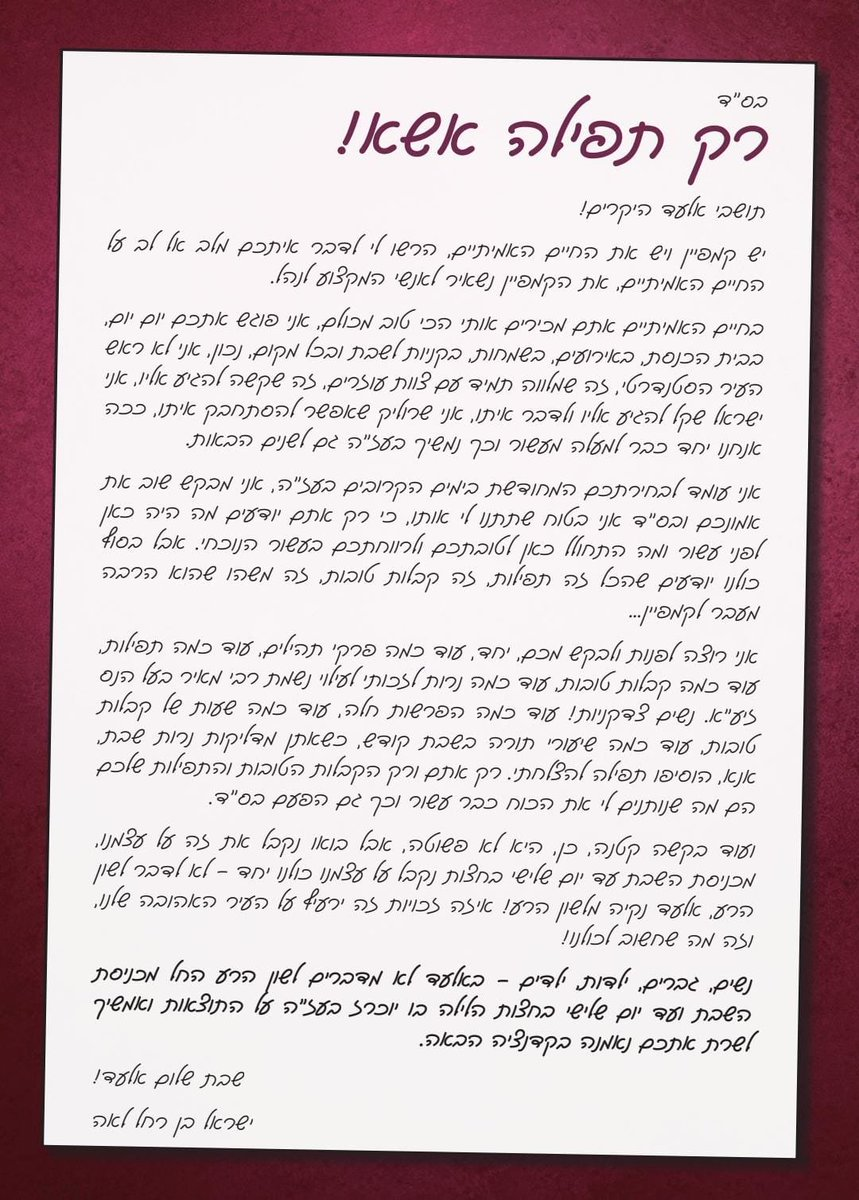 בס"ד
רק תפילה אשא!
תושבי אלעד היקרים!
יש קמפיין ויש את החיים האמיתיים, הרשו לי לדבר איתכם מלב אל לב על
החיים האמיתיים, את הקמפיין נשאיר לאנשי המקצוע לנהל.
בחיים האמיתיים אתם מכירים אותי הכי טוב מכולם, אני פוגש אתכם יום יום,
בבית הכנסת, באירועים, בשמחות, בקניות לשבת ובכל מקום, נכון, אני לא ראש
העיר הסטנדרטי, זה שמלווה תמיד עם צוות עוזרים, זה שקשה להגיע אליו, אני
ישראל שקל להגיע אליו ולדבר איתו, אני שרוליק שאפשר להסתחבק איתו, ככה
אנחנו יחד כבר למעלה מעשור וכך נמשיך בעז"ה גם לשנים הבאות.
אני עומד לבחירתכם המחודשת בימים הקרובים בעז"ה, אני מבקש שוב את
אמונכם ובס"ד אני בטוח שתתנו לי אותו, כי רק אתם יודעים מה היה כאן
לפני עשור ומה התחולל כאן לטובתכם ולרווחתכם בעשור הנוכחי. אבל בסוף
כולנו יודעים שהכל זה תפילות, זה קבלות טובות, זה משהו שהוא הרבה
מעבר לקמפיין...
אני רוצה לפנות ולבקש מכם, יחד, עוד כמה פרקי תהילים, עוד כמה תפילות,
עוד כמה קבלות טובות, עוד כמה נרות לזכותי לעילוי נשמת רבי מאיר בעל הנס
זיע"א. נשים צדקניות! עוד כמה הפרשות חלה, עוד כמה שעות של קבלות
טובות, עוד כמה שיעורי תורה בשבת קודש, כשאתן מדליקות נרות שבת,
אנא, הוסיפו תפילה להצלחתי. רק אתם ורק הקבלות הטובות והתפילות שלכם
הם מה שנותנים לי את הכוח כבר עשור וכך גם הפעם בס"ד.
ועוד בקשה קטנה, כן, היא לא פשוטה, אבל בואו נקבל את זה על עצמנו,
מכניסת השבת עד יום שלישי בחצות נקבל על עצמנו כולנו יחד – לא לדבר לשון
הרע, אלעד נקיה מלשון הרע! איזה זכויות זה ירעיף על העיר האהובה שלנו,
וזה מה שחשוב לכולנו!
נשים, גברים, ילדות, ילדים – באלעד לא מדברים לשון הרע החל מכניסת
השבת ועד יום שלישי בחצות הלילה בו יוכרז בעז"ה על התוצאות ואמשיך
לשרת אתכם נאמנה בקדנציה הבאה.
שבת שלום אלעד!
ישראל בן רחל לאה